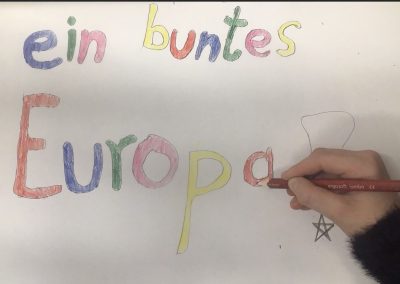 ein buntes
Europa